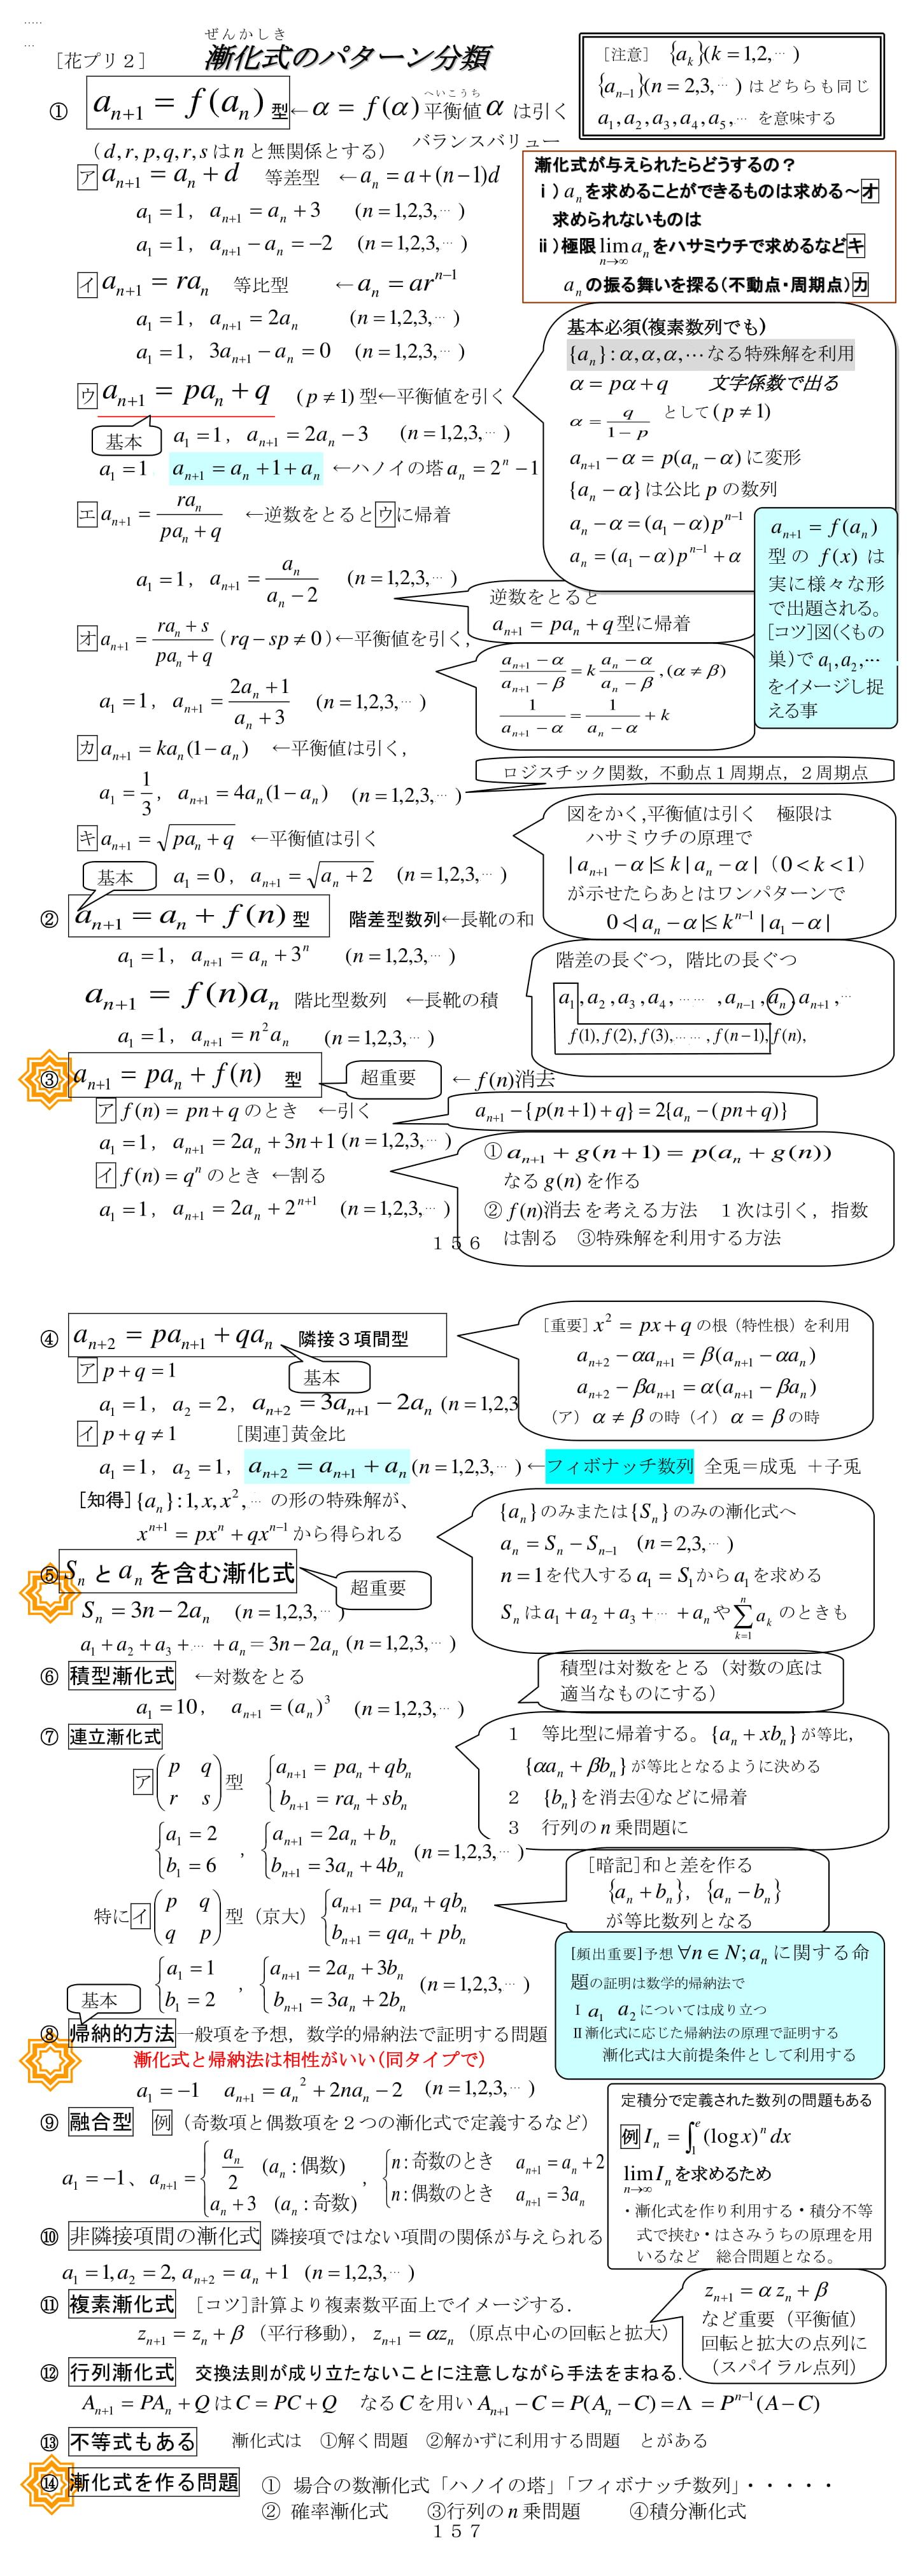 .....
...
ぜんかしき
［花プリ２］　漸化式のパターン分類
［注意］ {a_k}(k=1,2,…)
{a_{n-1}}(n=2,3,…) はどちらも同じ
a_1,a_2,a_3,a_4,a_5,… を意味する
① a_{n+1}=f(a_n) 型←α=f(α) 平衡値(へいこうち) α は引く
（d,r,p,q,r,sはnと無関係とする）　バランスバリュー
漸化式が与えられたらどうするの？
ⅰ）a_nを求めることができるものは求める～オ
求められないものは
ⅱ）極限 lim_{n→∞} a_n をハサミウチで求めるなどキ
a_nの振る舞いを探る（不動点・周期点）カ
ア a_{n+1}=a_n+d　等差型　←a_n=a+(n-1)d
a_1=1, a_{n+1}=a_n+3　(n=1,2,3,…)
a_1=1, a_{n+1}-a_n=-2　(n=1,2,3,…)
イ a_{n+1}=ra_n　等比型　←a_n=ar^{n-1}
a_1=1, a_{n+1}=2a_n　(n=1,2,3,…)
a_1=1, 3a_{n+1}-a_n=0　(n=1,2,3,…)
ウ a_{n+1}=pa_n+q　(p≠1) 型←平衡値を引く
基本　a_1=1, a_{n+1}=2a_n-3　(n=1,2,3,…)
a_1=1　a_{n+1}=a_n+1+a_n　←ハノイの塔 a_n=2^n-1
基本必須(複素数列でも)
{a_n}:α,α,α,…なる特殊解を利用
α=pα+q　文字係数で出る
α=q/(1-p)　として(p≠1)
a_{n+1}-α=p(a_n-α)に変形
{a_n-α}は公比 p の数列
a_n-α=(a_1-α)p^{n-1}
a_n=(a_1-α)p^{n-1}+α
エ a_{n+1}=ra_n/(pa_n+q)　←逆数をとるとウに帰着
a_1=1, a_{n+1}=a_n/(a_n-2)　(n=1,2,3,…)
逆数をとると
a_{n+1}=pa_n+q型に帰着
a_{n+1}=f(a_n)
型の f(x) は
実に様々な形
で出題される。
［コツ］図(くもの
巣)で a_1,a_2,…
をイメージし捉
える事
オ a_{n+1}=(ra_n+s)/(pa_n+q) (rq-sp≠0)←平衡値を引く，
a_1=1, a_{n+1}=(2a_n+1)/(a_n+3)　(n=1,2,3,…)
(a_{n+1}-α)/(a_{n+1}-β)=k(a_n-α)/(a_n-β),(α≠β)
1/(a_{n+1}-α)=1/(a_n-α)+k
カ a_{n+1}=ka_n(1-a_n)　←平衡値は引く，
ロジスチック関数，不動点１周期点，２周期点
a_1=1/3, a_{n+1}=4a_n(1-a_n)　(n=1,2,3,…)
キ a_{n+1}=√(pa_n+q)　←平衡値は引く
基本　a_1=0, a_{n+1}=√(a_n+2)　(n=1,2,3,…)
図をかく,平衡値は引く　極限は
ハサミウチの原理で
|a_{n+1}-α|≤k|a_n-α|（0<k<1）
が示せたらあとはワンパターンで
0<|a_n-α|≤k^{n-1}|a_1-α|
② a_{n+1}=a_n+f(n) 型　階差型数列←長靴の和
a_1=1, a_{n+1}=a_n+3^n　(n=1,2,3,…)
a_{n+1}=f(n)a_n　階比型数列　←長靴の積
a_1=1, a_{n+1}=n^2a_n　(n=1,2,3,…)
階差の長ぐつ，階比の長ぐつ
a_1,a_2,a_3,a_4,……,a_{n-1},a_n,a_{n+1},…
f(1),f(2),f(3),……,f(n-1),f(n),
③ a_{n+1}=pa_n+f(n)　型　超重要　←f(n)消去
ア f(n)=pn+q のとき　←引く
a_{n+1}-{p(n+1)+q}=2{a_n-(pn+q)}
a_1=1, a_{n+1}=2a_n+3n+1 (n=1,2,3,…)
イ f(n)=q^n のとき ←割る
a_1=1, a_{n+1}=2a_n+2^{n+1}　(n=1,2,3,…)
① a_{n+1}+g(n+1)=p(a_n+g(n))
なる g(n) を作る
② f(n)消去 を考える方法　１次は引く，指数
は割る　③特殊解を利用する方法
１５６
④ a_{n+2}=pa_{n+1}+qa_n　隣接３項間型
ア p+q=1　基本
a_1=1, a_2=2, a_{n+2}=3a_{n+1}-2a_n (n=1,2,3
［重要］x^2=px+q の根（特性根）を利用
a_{n+2}-αa_{n+1}=β(a_{n+1}-αa_n)
a_{n+2}-βa_{n+1}=α(a_{n+1}-βa_n)
（ア）α≠β の時（イ）α=β の時
イ p+q≠1　［関連］黄金比
a_1=1, a_2=1, a_{n+2}=a_{n+1}+a_n (n=1,2,3,…) ←フィボナッチ数列 全兎＝成兎 ＋子兎
［知得］{a_n}:1,x,x^2,… の形の特殊解が、
x^{n+1}=px^n+qx^{n-1}から得られる
⑤ S_nとa_nを含む漸化式　超重要
S_n=3n-2a_n　(n=1,2,3,…)
a_1+a_2+a_3+…+a_n=3n-2a_n (n=1,2,3,…)
{a_n}のみまたは{S_n}のみの漸化式へ
a_n=S_n-S_{n-1}　(n=2,3,…)
n=1を代入する a_1=S_1から a_1を求める
S_nは a_1+a_2+a_3+…+a_n や Σ_{k=1}^{n} a_k のときも
⑥ 積型漸化式　←対数をとる
a_1=10, a_{n+1}=(a_n)^3　(n=1,2,3,…)
積型は対数をとる（対数の底は
適当なものにする）
⑦ 連立漸化式
ア (p q / r s) 型　{a_{n+1}=pa_n+qb_n
b_{n+1}=ra_n+sb_n
{a_1=2, b_1=6 , {a_{n+1}=2a_n+b_n, b_{n+1}=3a_n+4b_n (n=1,2,3,…)
１　等比型に帰着する。{a_n+xb_n}が等比，
{αa_n+βb_n}が等比となるように決める
２　{b_n}を消去④などに帰着
３　行列の n 乗問題に
特にイ (p q / q p) 型（京大）{a_{n+1}=pa_n+qb_n
b_{n+1}=qa_n+pb_n
{a_1=1, b_1=2 , {a_{n+1}=2a_n+3b_n, b_{n+1}=3a_n+2b_n (n=1,2,3,…)
［暗記］和と差を作る
{a_n+b_n}, {a_n-b_n}
が等比数列となる
基本
⑧ 帰納的方法 一般項を予想，数学的帰納法で証明する問題
漸化式と帰納法は相性がいい（同タイプで）
a_1=-1　a_{n+1}=a_n^2+2na_n-2　(n=1,2,3,…)
［頻出重要］予想 ∀n∈N;a_n に関する命
題の証明は数学的帰納法で
Ⅰ a_1　a_2については成り立つ
Ⅱ漸化式に応じた帰納法の原理で証明する
漸化式は大前提条件として利用する
⑨ 融合型　例（奇数項と偶数項を２つの漸化式で定義するなど）
a_1=-1、a_{n+1}={a_n/2 (a_n:偶数), a_n+3 (a_n:奇数) , {n:奇数のとき a_{n+1}=a_n+2
n:偶数のとき a_{n+1}=3a_n
定積分で定義された数列の問題もある
例 I_n=∫_1^e (log x)^n dx
lim_{n→∞} I_n を求めるため
・漸化式を作り利用する・積分不等
式で挟む・はさみうちの原理を用
いるなど　総合問題となる。
⑩ 非隣接項間の漸化式　隣接項ではない項間の関係が与えられる
a_1=1,a_2=2, a_{n+2}=a_n+1 (n=1,2,3,…)
⑪ 複素漸化式　［コツ］計算より複素数平面上でイメージする．
z_{n+1}=z_n+β（平行移動），z_{n+1}=αz_n（原点中心の回転と拡大）
z_{n+1}=αz_n+β
など重要（平衡値）
回転と拡大の点列に
（スパイラル点列）
⑫ 行列漸化式　交換法則が成り立たないことに注意しながら手法をまねる．
A_{n+1}=PA_n+Q は C=PC+Q　なる C を用い A_{n+1}-C=P(A_n-C)=Λ =P^{n-1}(A-C)
⑬ 不等式もある　漸化式は　①解く問題　②解かずに利用する問題　とがある
⑭ 漸化式を作る問題　①　場合の数漸化式「ハノイの塔」「フィボナッチ数列」・・・・・
②　確率漸化式　③行列の n 乗問題　④積分漸化式
１５７